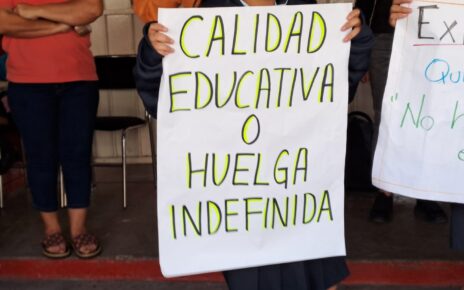 CALIDAD
EDUCATIVA
O
HUELGA
INDEFINIDA
Qui
"No h